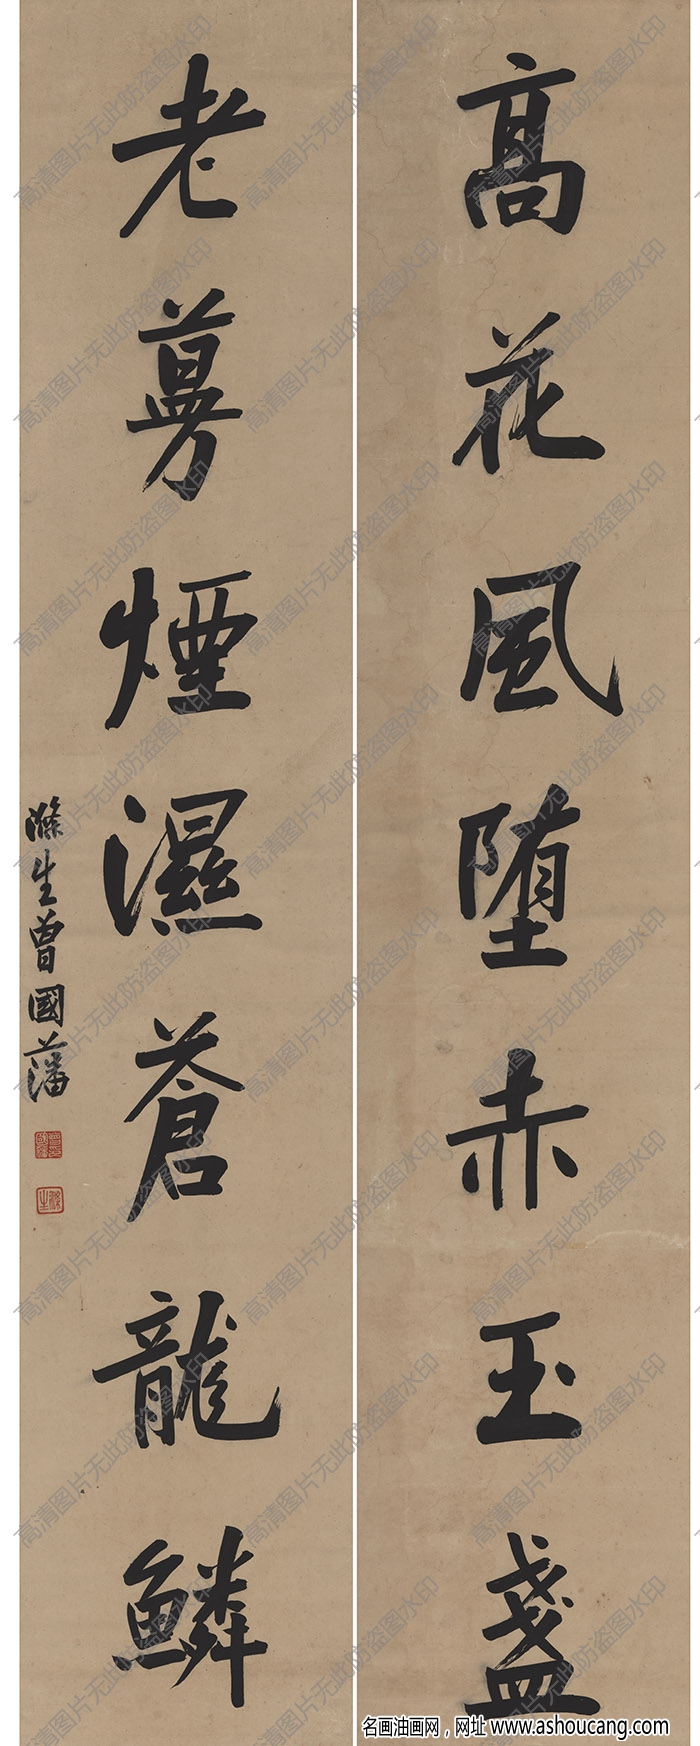 髙花風堕赤玉盞
老蔓煙濕蒼龍鱗
滌生曾國藩
滌生
高清图片无此防盗图水印
名画油画网，网址 www.ashoucang.com